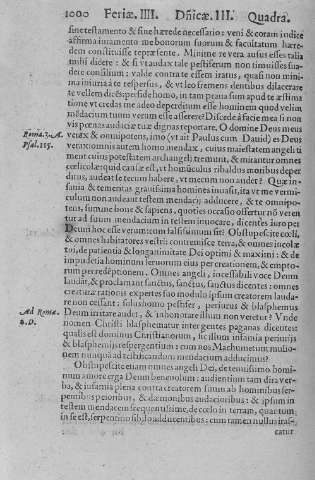 1000 Feriæ. IIII. Dñicæ. III. Quadra.
sine testamento & sine hærede necessario: veni & coram iudice
affirma iuramento me bonorum suorum & facultatum hære-
dem constituisse repente. Minime re vera ausus esses talia
mihi dicere: & si vt audax tale pestiferum non timuisses sua-
dere consilium: valde contra te essem iratus, quasi non mini-
ma iniuria à te respersus, & vt leo fremens dentibus dilacerare
te vellem dicens: perfide homo, in tam parua sum apud te æstima
tione vt credas me adeo deperditum esse hominem quod velim
mendacium tuum verum esse asserere? Discede à facie mea si non
vis pœnas audaciæ tuæ dignas reportare. O domine Deus meus
Roma. 3. A. verax & omnipotens, imo (vt ait Paulus cum Dauid) es Deus
Psal. 115. verax: omnis autem homo mendax, cuius maiestatem angeli ti
ment cuius potestatem archangeli tremunt, & mirantur omnes
cœlicolæ: quid canis est, vt homuncius ribaldus moribus deper
ditus, audeat te tecum habere, vt mecum non audet? Quæ in-
sania & tementas grauissima homines inuasit, ita vt me vermi-
culum non audeant testem mendacij adducere, & te omnipo-
tens, summe bone & sapiens, quoties occasio offertur nō veren
tur ad suum mendacium in testem inuocare, dicentes iuro per
Deum hoc esse verum cum falsissimum sit? Obstupescite cœli,
& omnes habitatores vestri: contremisce terra, & omnes incolæ
tui, de patientia & longanimitate Dei optimi & maximi: & de
impudentia hominum seruorum eius per creationem, & empto-
rum per redemptionem. Omnes angeli, incessabili voce Deum
laudāt, & proclamant sanctus, sanctus, sanctus dicentes: omnes
creaturæ rationis expertes suo modulo ipsum creatorem lauda-
re non cessant: solus homo pestifer, periurus & blasphemus
Ad Roma. Deum irritare audet, & inhonorare illum non veretur? Vnde
2. D. nomen Christi blasphematur inter gentes paganas dicentes
qualis est dominus Christianorum, si cum illum infamia periurijs
& blasphemijs respergentium: cum nos Machumetum nostrum
nem nunquā ad testificandum mendacium adducimus?
Obstupescite etiam omnes angeli Dei, de tenuissimo homi-
num amore erga Deum benuolum: audientium tam dira ver-
ba, & infamia plena contra creatorem suum ab hominibus ser-
pentibus peioribus, & dæmonibus audacioribus: & ipsum in
testem mendacem frequentissime, de cœlo in terram, quantum
in se est, serpentino sibilo adducentibus: cum tamen nullus iras-
catur